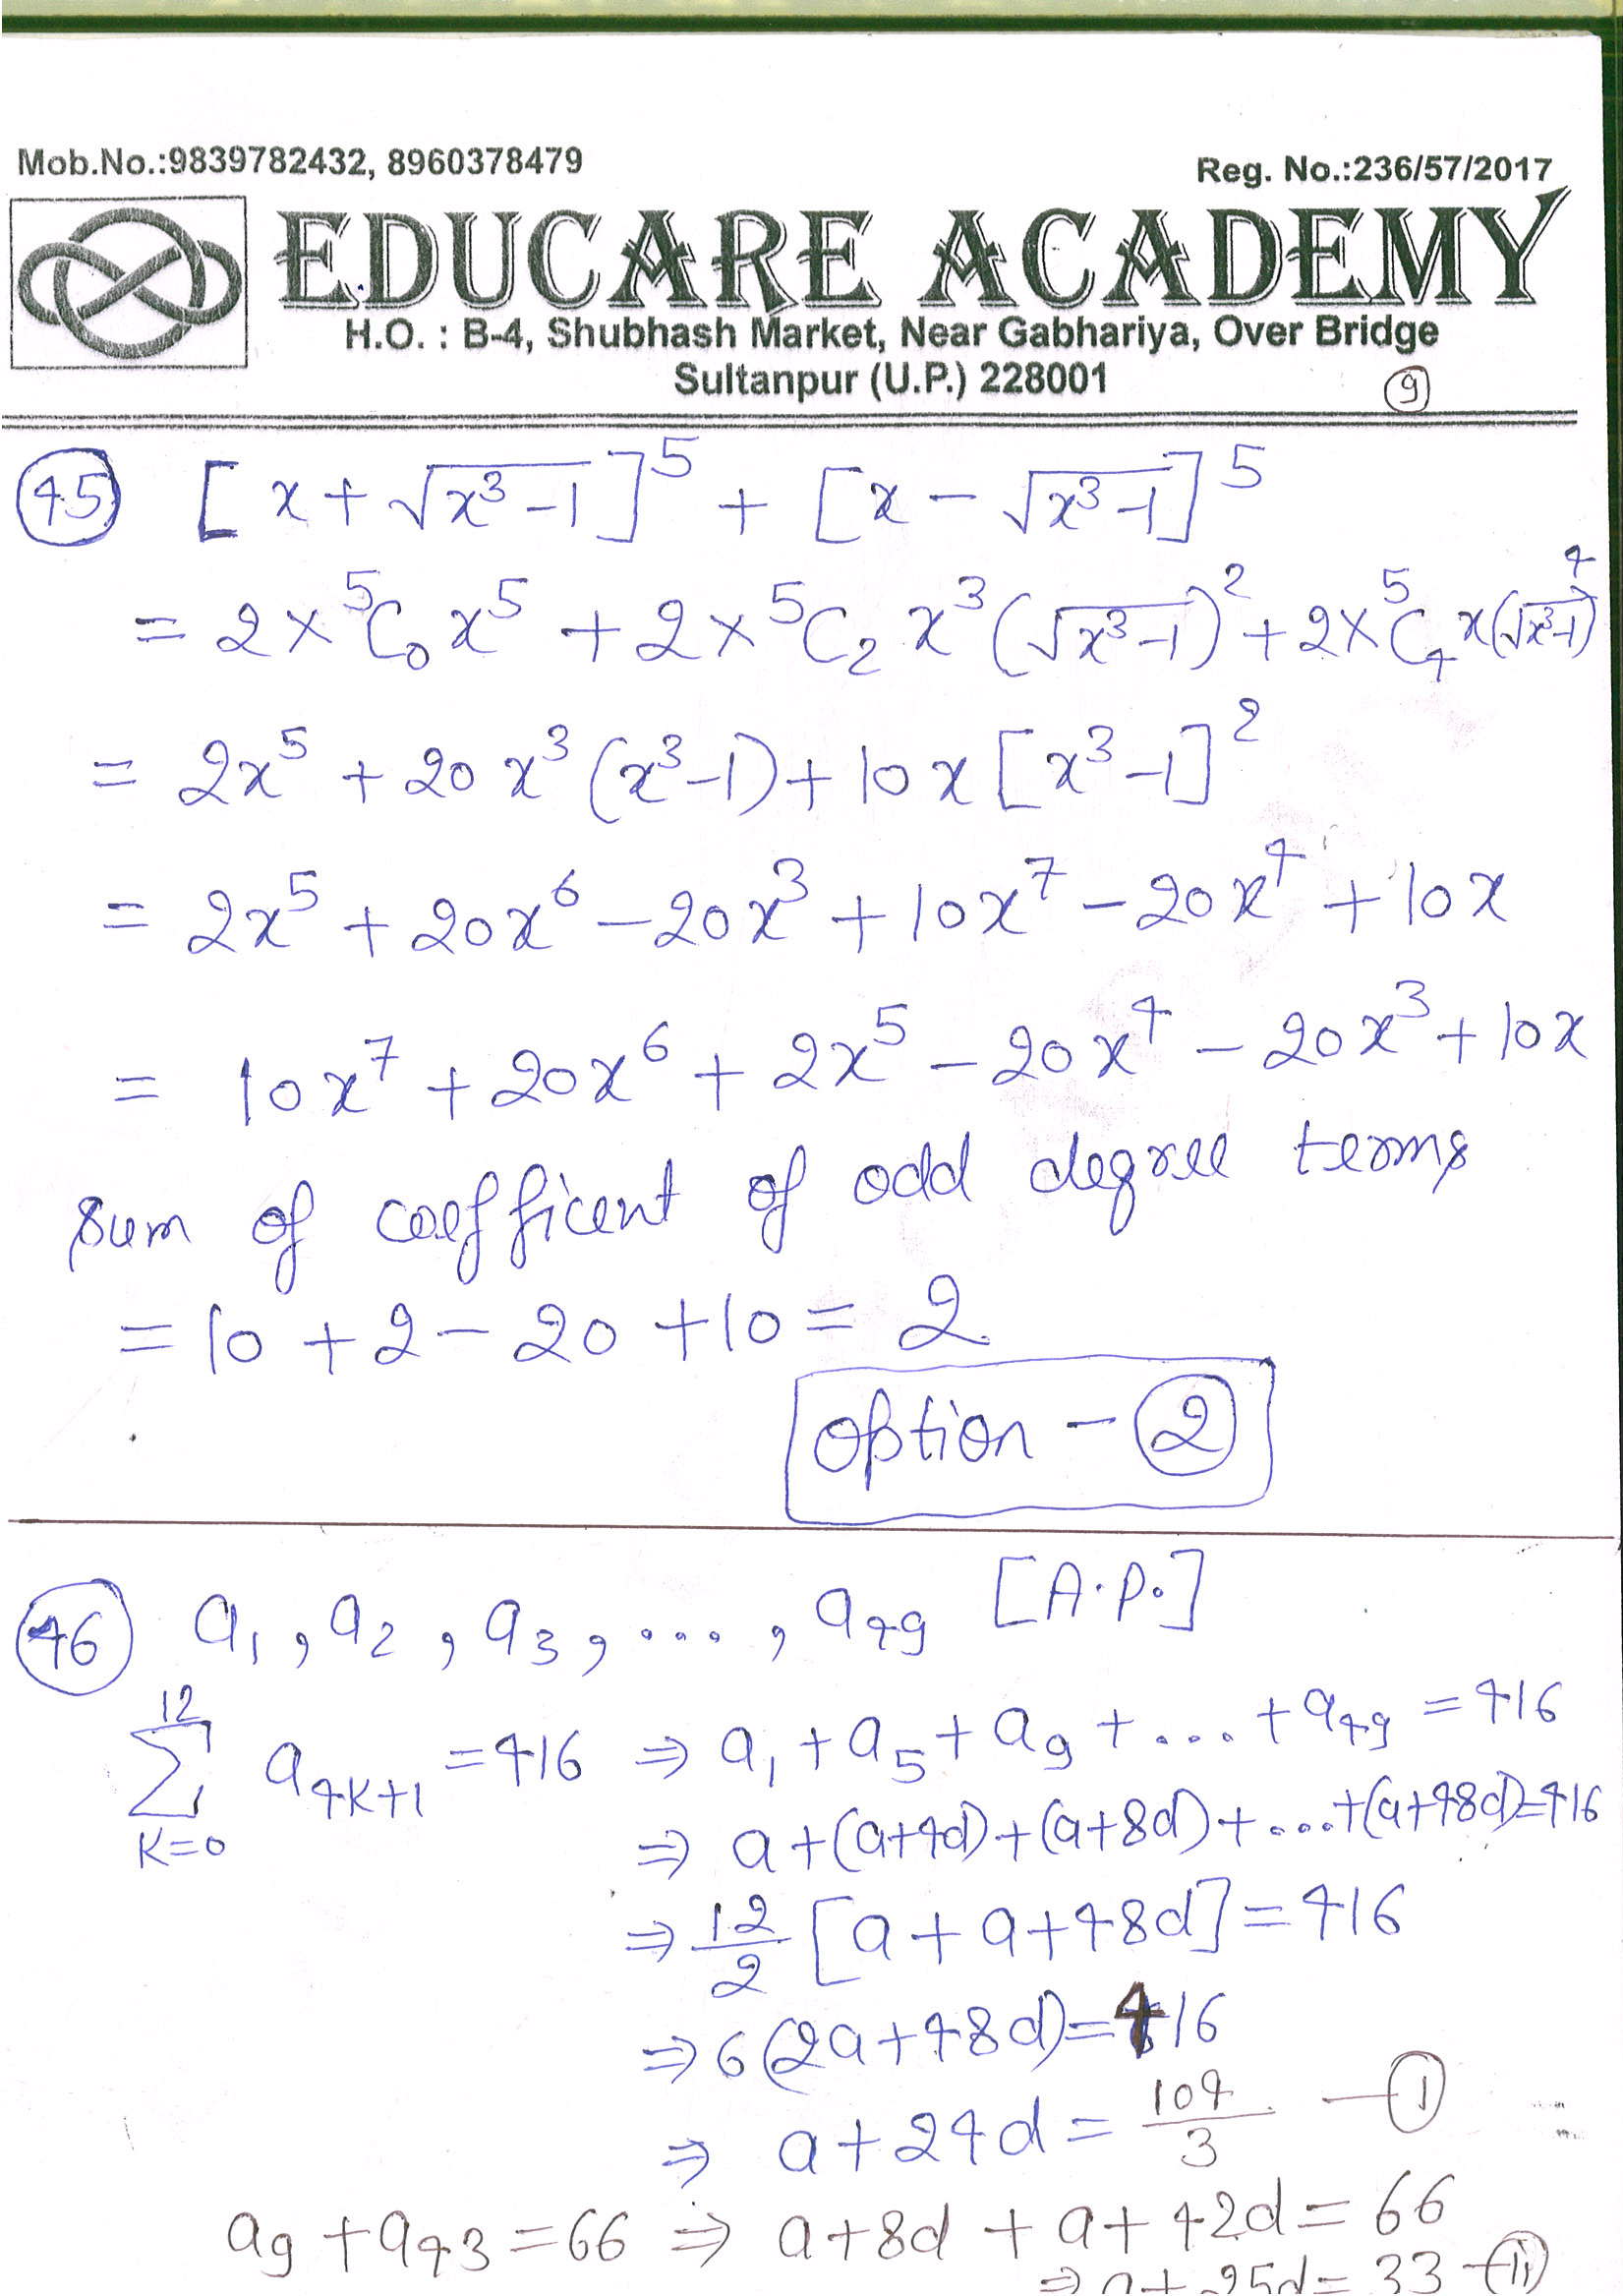 Mob.No.:9839782432, 8960378479
Reg. No.:236/57/2017
EDUCARE ACADEMY
H.O. : B-4, Shubhash Market, Near Gabhariya, Over Bridge
Sultanpur (U.P.) 228001
9
45 [x + √(x³-1)]⁵ + [x - √(x³-1)]⁵
= 2 × ⁵C₀ x⁵ + 2 × ⁵C₂ x³ (√(x³-1))² + 2 × ⁵C₄ x (√(x³-1))⁴
= 2x⁵ + 20 x³ (x³-1) + 10 x [x³-1]²
= 2x⁵ + 20x⁶ - 20x³ + 10x⁷ - 20x⁴ + 10x
= 10x⁷ + 20x⁶ + 2x⁵ - 20x⁴ - 20x³ + 10x
sum of coefficent of odd degree terms
= 10 + 2 - 20 + 10 = 2
option - 2
46 a₁, a₂, a₃, ..., a₄₉ [A.P.]
∑ₖ₌₀¹² a₄ₖ₊₁ = 416 ⇒ a₁ + a₅ + a₉ + ... + a₄₉ = 416
⇒ a + (a+4d) + (a+8d) + ... + (a+48d) = 416
⇒ 12/2 [a + a + 48d] = 416
⇒ 6(2a + 48d) = 416
⇒ a + 24d = 104/3 — 1
a₉ + a₄₃ = 66 ⇒ a + 8d + a + 42d = 66
⇒ a + 25d = 33 — ii